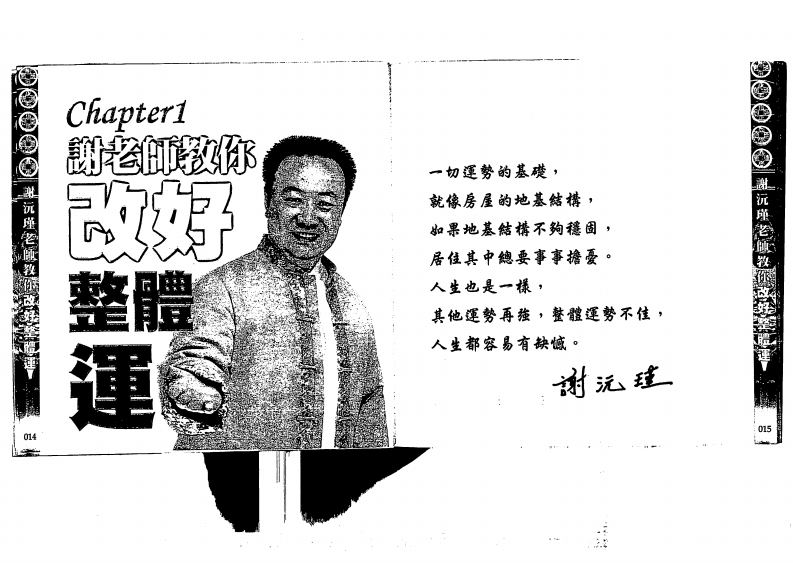 Chapter1
謝老師教你
改好
整體
運
謝沅瑾老師教你改好整體運
014
一切運勢的基礎，
就像房屋的地基結構，
如果地基結構不夠穩固，
居住其中總要事事擔憂。
人生也是一樣，
其他運勢再強，整體運勢不佳，
人生都容易有缺憾。
謝沅瑾
謝沅瑾老師教你改好整體運
015